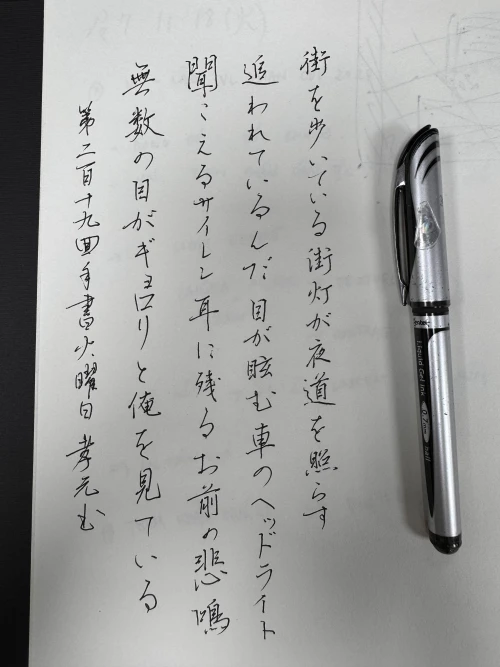 街を歩いている街灯が夜道を照らす
追われているんだ目が眩む車のヘッドライト
聞こえるサイレン耳に残るお前の悲鳴
無数の目がギョロリと俺を見ている
第二百十九回手書火曜日孝元也
Liquid Gel Ink 0.7mm ball